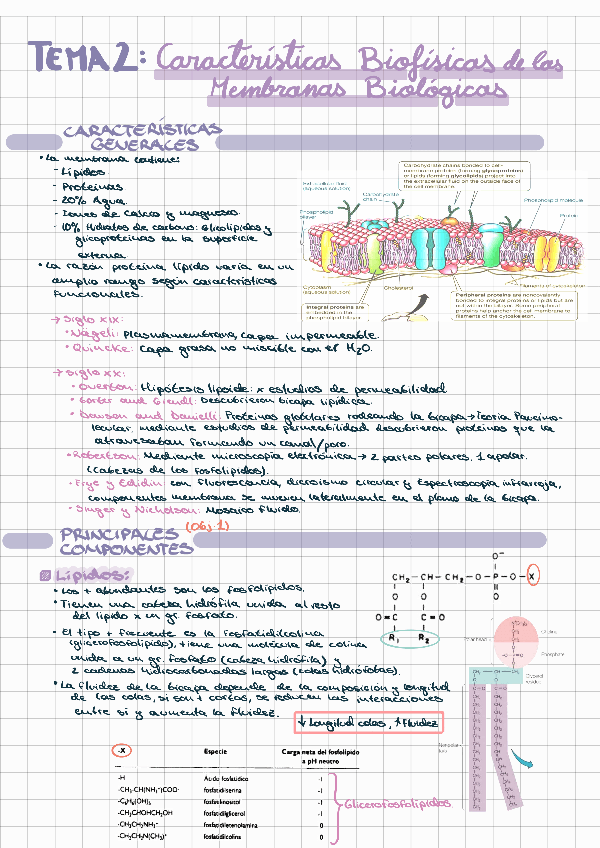 TEMA 2: Características Biofísicas de las
Membranas Biológicas
CARACTERÍSTICAS
GENERALES
• La membrana contiene:
- Lípidos.
- Proteínas
- 20% Agua.
- Iones de calcio y magnesio
- 10% Hidratos de carbono: Glicolípidos y
glicoproteínas en la superficie
externa.
• La razón proteína, lípido varía en un
amplio rango según características
funcionales.
Carbohydrate chains bonded to cell-
membrane proteins (forming glycoproteins)
or lipids (forming glycolipids) project into
the extracellular fluid on the outside face of
the cell membrane.
(aqueous solution)
Carbohydrate
chain
Phospholipid molecule
Phospholipid
bilayer
Protein
Cytoplasm
(aqueous solution)
Cholesterol
Filaments of cytoskeleton
Integral proteins are
embedded in the
phospholipid bilayer.
Peripheral proteins are noncovalently
bonded to integral proteins or lipids but are
not within the bilayer. Some peripheral
proteins help anchor the cell membrane to
filaments of the cytoskeleton.
→ Siglo XIX:
• Nägeli: Plasmamembrana, capa impermeable.
• Quincke: Capa grasa no miscible con el H₂O.
→ Siglo XX:
• Overton: Hipótesis lipoide: x estudios de permeabilidad
• Gorter and Grendl: Descubrieron bicapa lipídica.
• Dawson and Danielli: Proteínas globulares rodeando la bicapa → Teoría Paucimo-
lecular. mediante estudios de permeabilidad descubrieron proteínas que la
atravesaban formando un canal/poro.
• Robertson: Mediante microscopía electrónica → 2 partes polares, 1 apolar.
(cabezas de los fosfolípidos).
• Frye y Edidin: con Fluorescencia, dicroísmo circular y Espectroscopía infrarroja,
componentes membrana se mueven lateralmente en el plano de la bicapa.
• Singer y Nicholson: Mosaico fluido.
(Obj. 1)
PRINCIPALES
COMPONENTES
Lípidos:
• Los + abundantes son los fosfolípidos.
• Tienen una cabeza hidrófila unida al resto
del lípido x un gr. fosfato.
• El tipo + frecuente es la fosfatidilcolina
(glicerofosfolípido), tiene una molécula de colina
unida a un gr. fosfato (cabeza hidrófila) y
2 cadenas hidrocarbonadas largas (colas hidrófobas).
• La fluidez de la bicapa depende de la composición y longitud
de las colas, si son + cortas, se reducen las interacciones
entre sí y aumenta la fluidez.
↓ Longitud colas, ↑ Fluidez
O⁻
CH₂ – CH – CH₂ – O – P – O – X
O O O
O = C C = O
R₁ R₂
Choline
Phosphate
Glycerol
-X Especie Carga neta del fosfolípido
a pH neutro
-H Ácido fosfatídico -1
-CH₂-CH(NH₃⁺)COO⁻ fosfatidilserina -1
-C₆H₆(OH)₅ fosfatidilinositol -1
-CH₂CHOHCH₂OH fosfatidilglicerol -1
-CH₂CH₂NH₃⁺ fosfatidiletanolamina 0
-CH₂CH₂N(CH₃)₃⁺ fosfatidilcolina 0
Glicerofosfolípidos